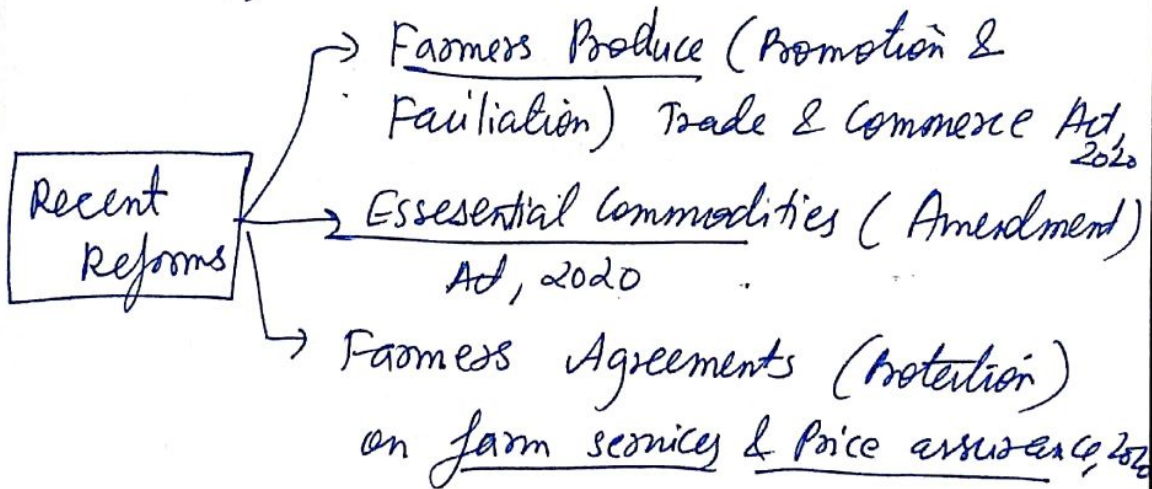 Farmers Produce (Promotion &
Faciliation) Trade & Commerce Act,
2020
Recent
Reforms
Essesential Commodities (Amendment)
Act, 2020
Farmers Agreements (Protection)
on farm services & Price assurance, 2020